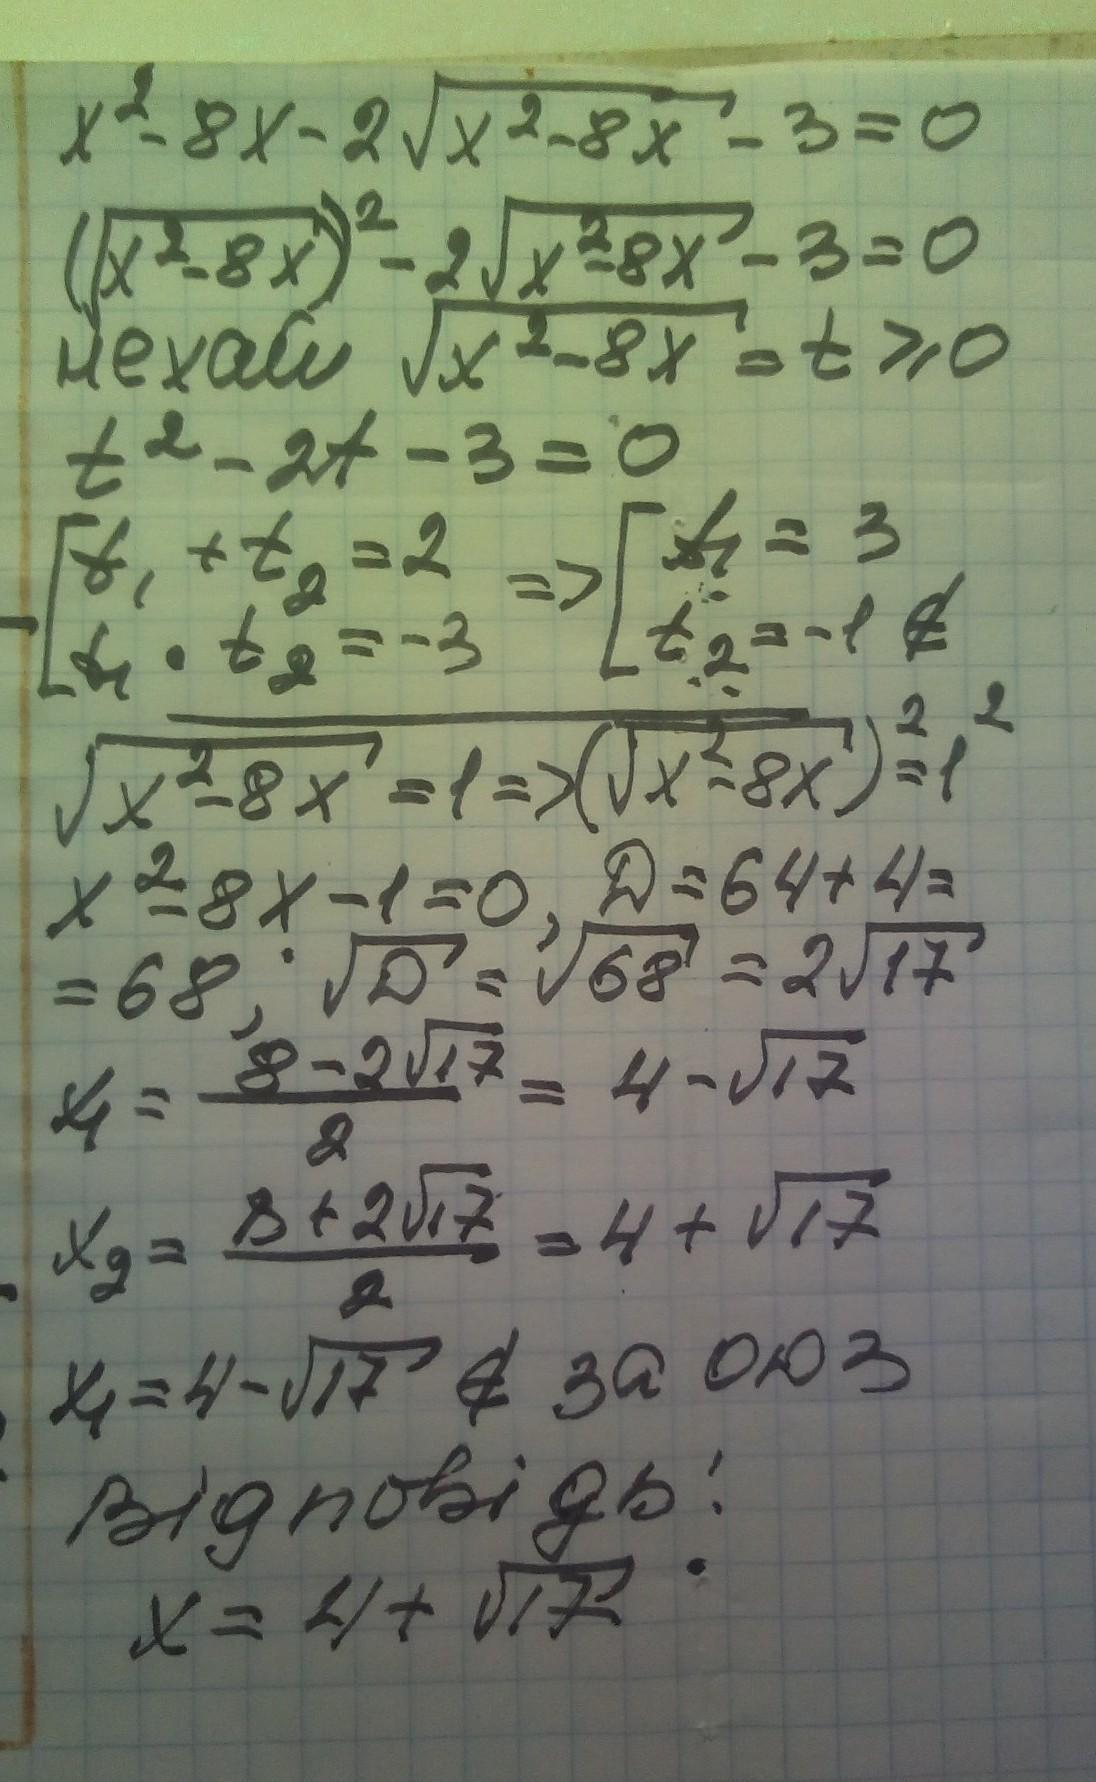 x² - 8x - 2√(x² - 8x) - 3 = 0
(√(x² - 8x))² - 2√(x² - 8x) - 3 = 0
нехай √(x² - 8x) = t ⩾ 0
t² - 2t - 3 = 0
[t₁ + t₂ = 2 => [t₁ = 3
[t₁ · t₂ = -3 [t₂ = -1 ∉
√(x² - 8x) = 1 => (√(x² - 8x))² = 1²
x² - 8x - 1 = 0, D = 64 + 4 =
= 68, √D = √68 = 2√17
x₁ = (8 - 2√17)/2 = 4 - √17
x₂ = (8 + 2√17)/2 = 4 + √17
x₁ = 4 - √17 ∉ за ОДЗ
Відповідь:
x = 4 + √17.